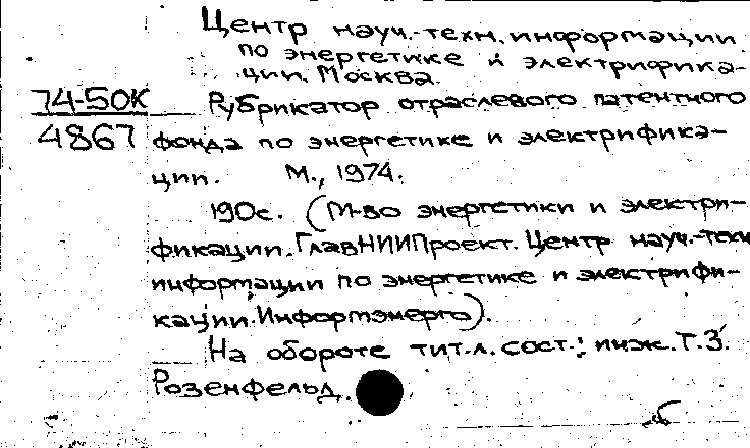 Центр науч.-техн. информации
по энергетике и электрифика-
ции. Москва.
74-50К
4867
Рубрикатор отраслевого патентного
фонда по энергетике и электрифика-
ции. М., 1974.
190с. (М-во энергетики и электри-
фикации. ГлавНИИПроект. Центр науч.-техн
информации по энергетике и электрифи-
кации. Информэнерго).
На обороте тит.л. сост.: инж. Т.З.
Розенфельд.